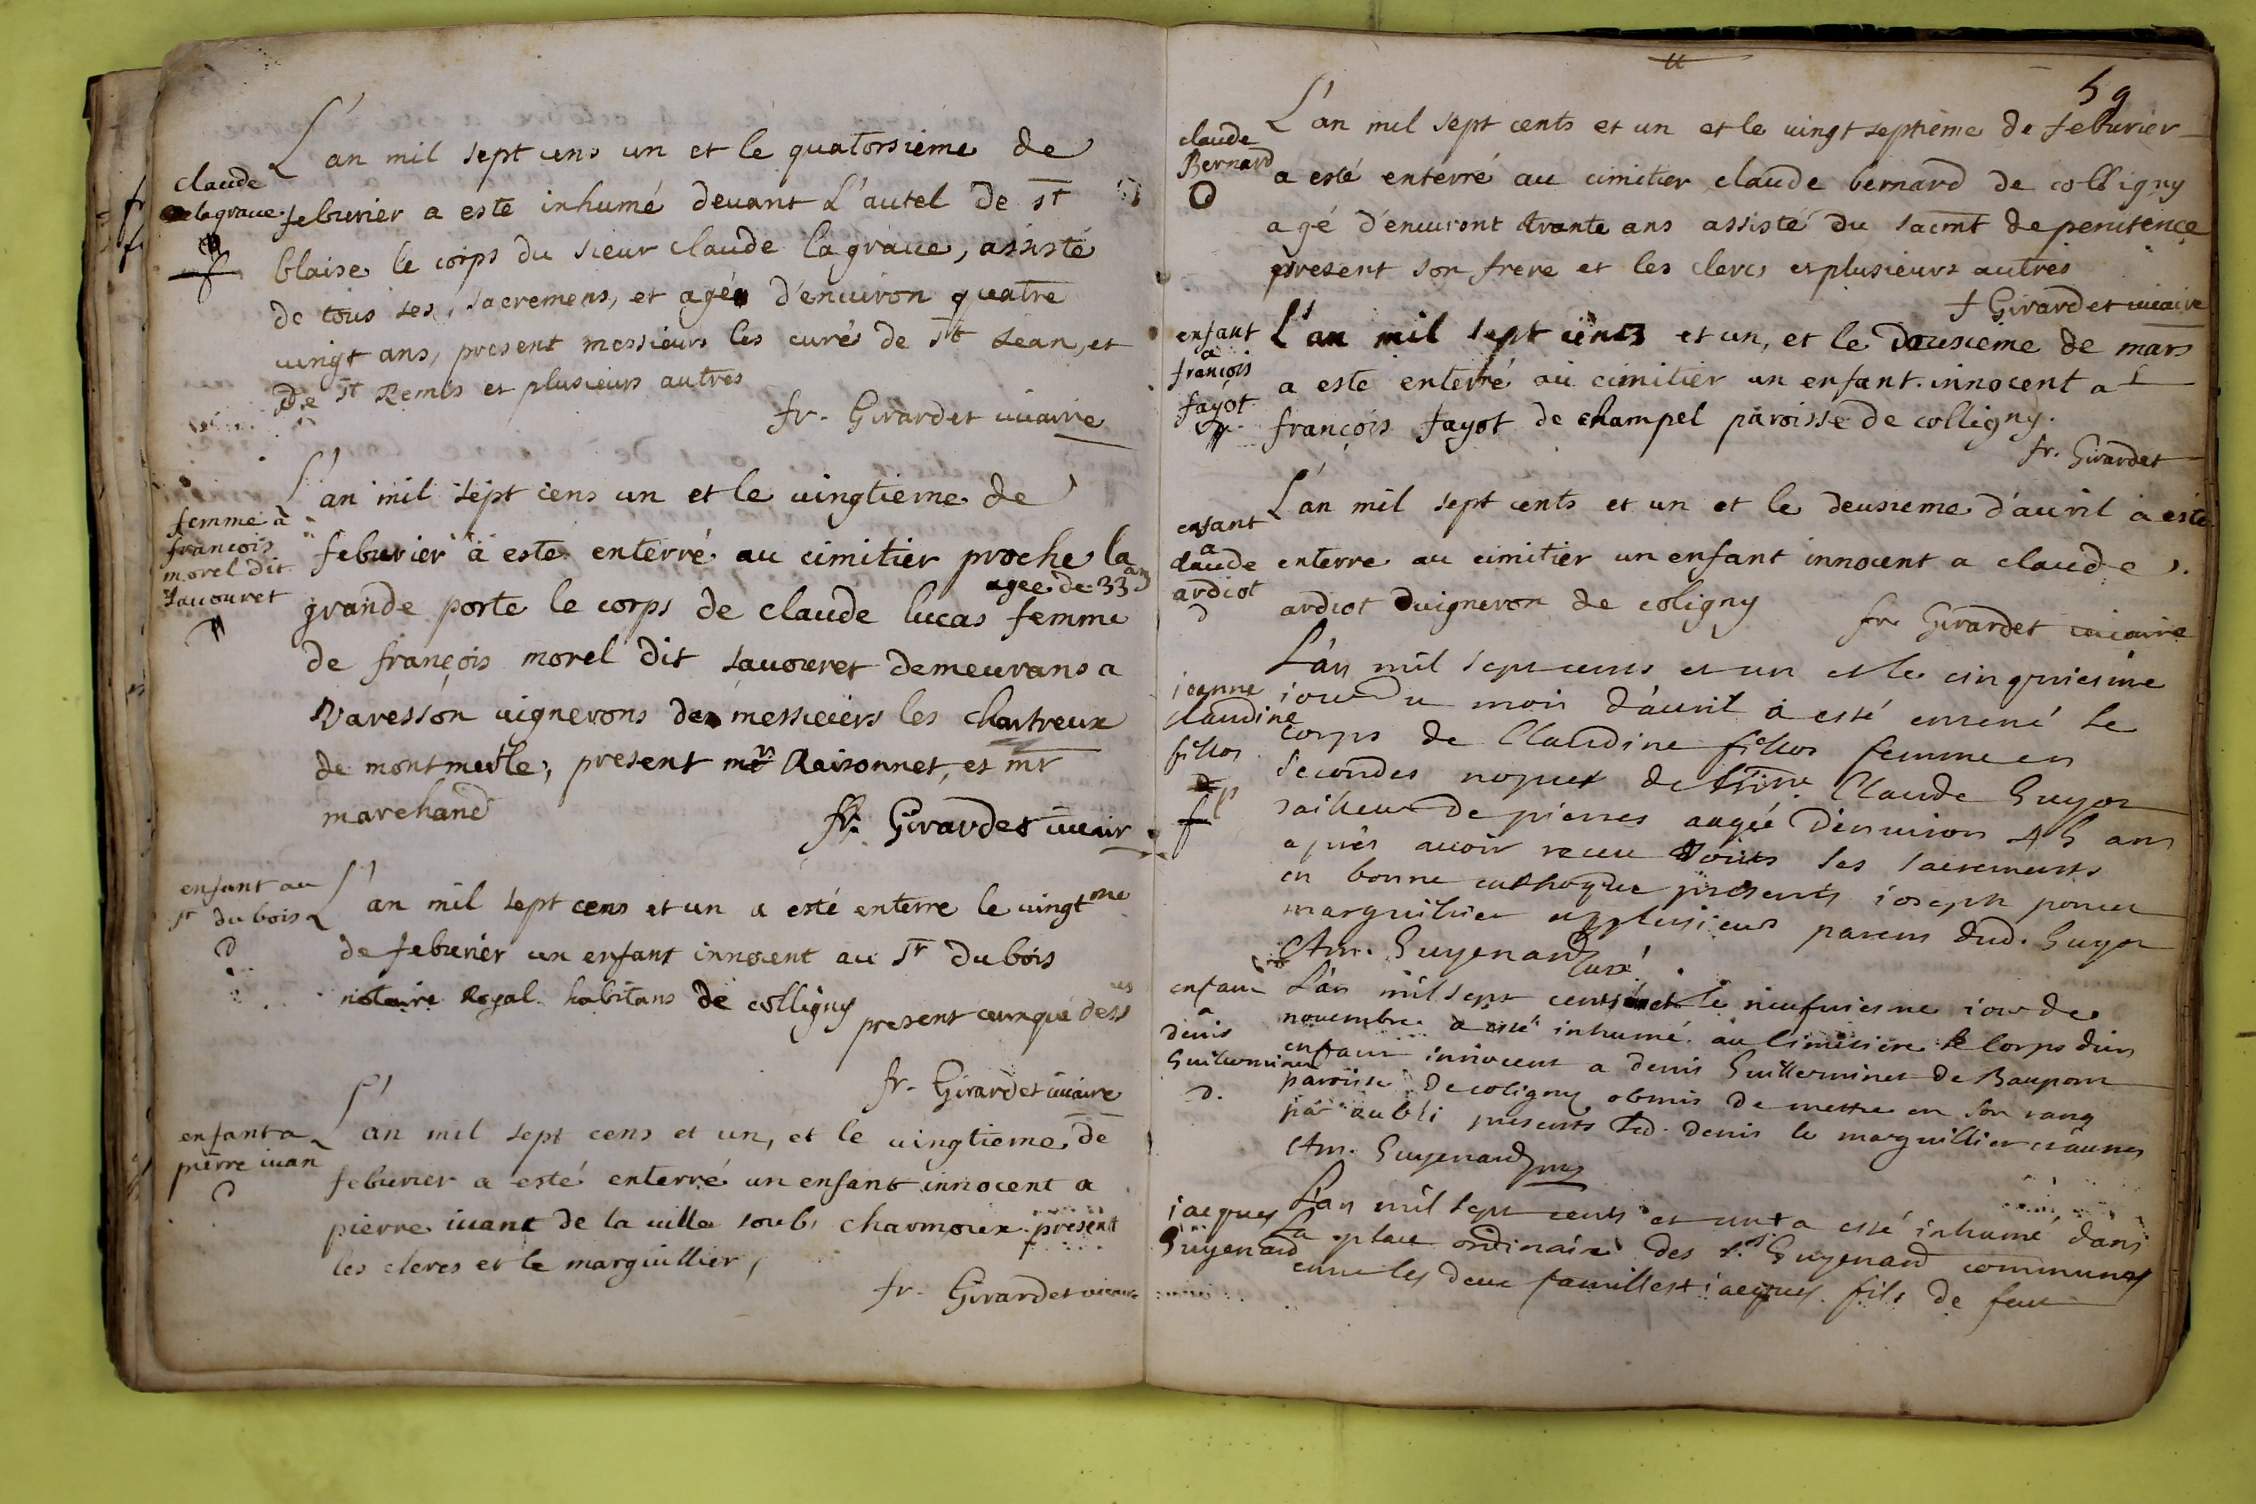 claude
delagraue
L'an mil sept cens un et le quatorsieme de
feburier a este inhumé deuant L'autel de st
blaise le corps du sieur claude lagraue, assisté
de tous ses sacremens, et agé d'enuiron quatre
uingt ans, present messieurs les curés de st Jean, et
de st Remis et plusieurs autres
fr. Girardet uicaire
femme à
françois
morel dit
sauouret
L'an mil sept cens un et le uingtieme de
feburier a este enterré au cimitier proche la
agee de 33 ans
grande porte le corps de claude lucas femme
de françois morel dit sauouret demeurans a
Varesson uignerons de messieurs les chartreux
de montmerle, present mr Raisonnet, et mr
marchand
fr. Girardet uicair
enfant au
sr dubois
L'an mil sept cens et un a esté enterre le uingtme
de feburier un enfant innocent au sr Dubois
notaire Royal habitans de colligny present ceux que dess
us
fr. Girardet uicaire
enfant a
pierre iuan
L'an mil sept cens et un, et le uingtieme de
feburier a esté enterré un enfant innocent a
pierre iuant de la uille soubs charmoux present
les clercs et le marguillier,
fr. Girardet uicaire
59
claude
Bernard
L'an mil sept cents et un et le uingt septieme de feburier
a esté enterré au cimitier claude bernard de colligny
agé d'enuiront trante ans assisté du sacmt de penitence
present son frere et les clercs et plusieurs autres
f Girardet uicaire
enfant
a
françois
fayot
L'an mil sept cents et un, et le dousieme de mars
a este enterré au cimitier un enfant innocent a
françois fayot de champel paroisse de colligny.
fr. Girardet
enfant
a
claude
ardiot
L'an mil sept cents et un et le deusieme d'auril a esté
enterre au cimitier un enfant innocent a claude
ardiot uigneron de coligny
fr. Girardet uicaire
jeanne
claudine
fillos
L'an mil sept cents et un et le cinquiesme
iour du mois d'auril a esté enterré le
corps de Claudine fillos femme en
secondes nopces de Claude Guyot
tailleur de pierres augée d'enuiron 45 ans
après auoir receu tous ses sacrements
en bonne catholique presents ioseph poncet
marguillier et plusieurs parens dud. Guyot
Am. Guyenard Curé
enfant
a
denis
Guillerminet
L'an mil sept cents et le neufuiesme iour de
nouembre a esté inhumé au Cimetiere le Corps d'un
enfant innocent a denis Guillerminet de Baupont
paroisse de coligny obmis de mettre en son rang
par oubli presents led. denis le marguillier et autres
Am. Guyenard
iacques
Guyenard
L'an mil sept cents et un a esté inhumé dans
La place ordinaire des srs Guyenard commune
entre les deux familles iacques fils de feu